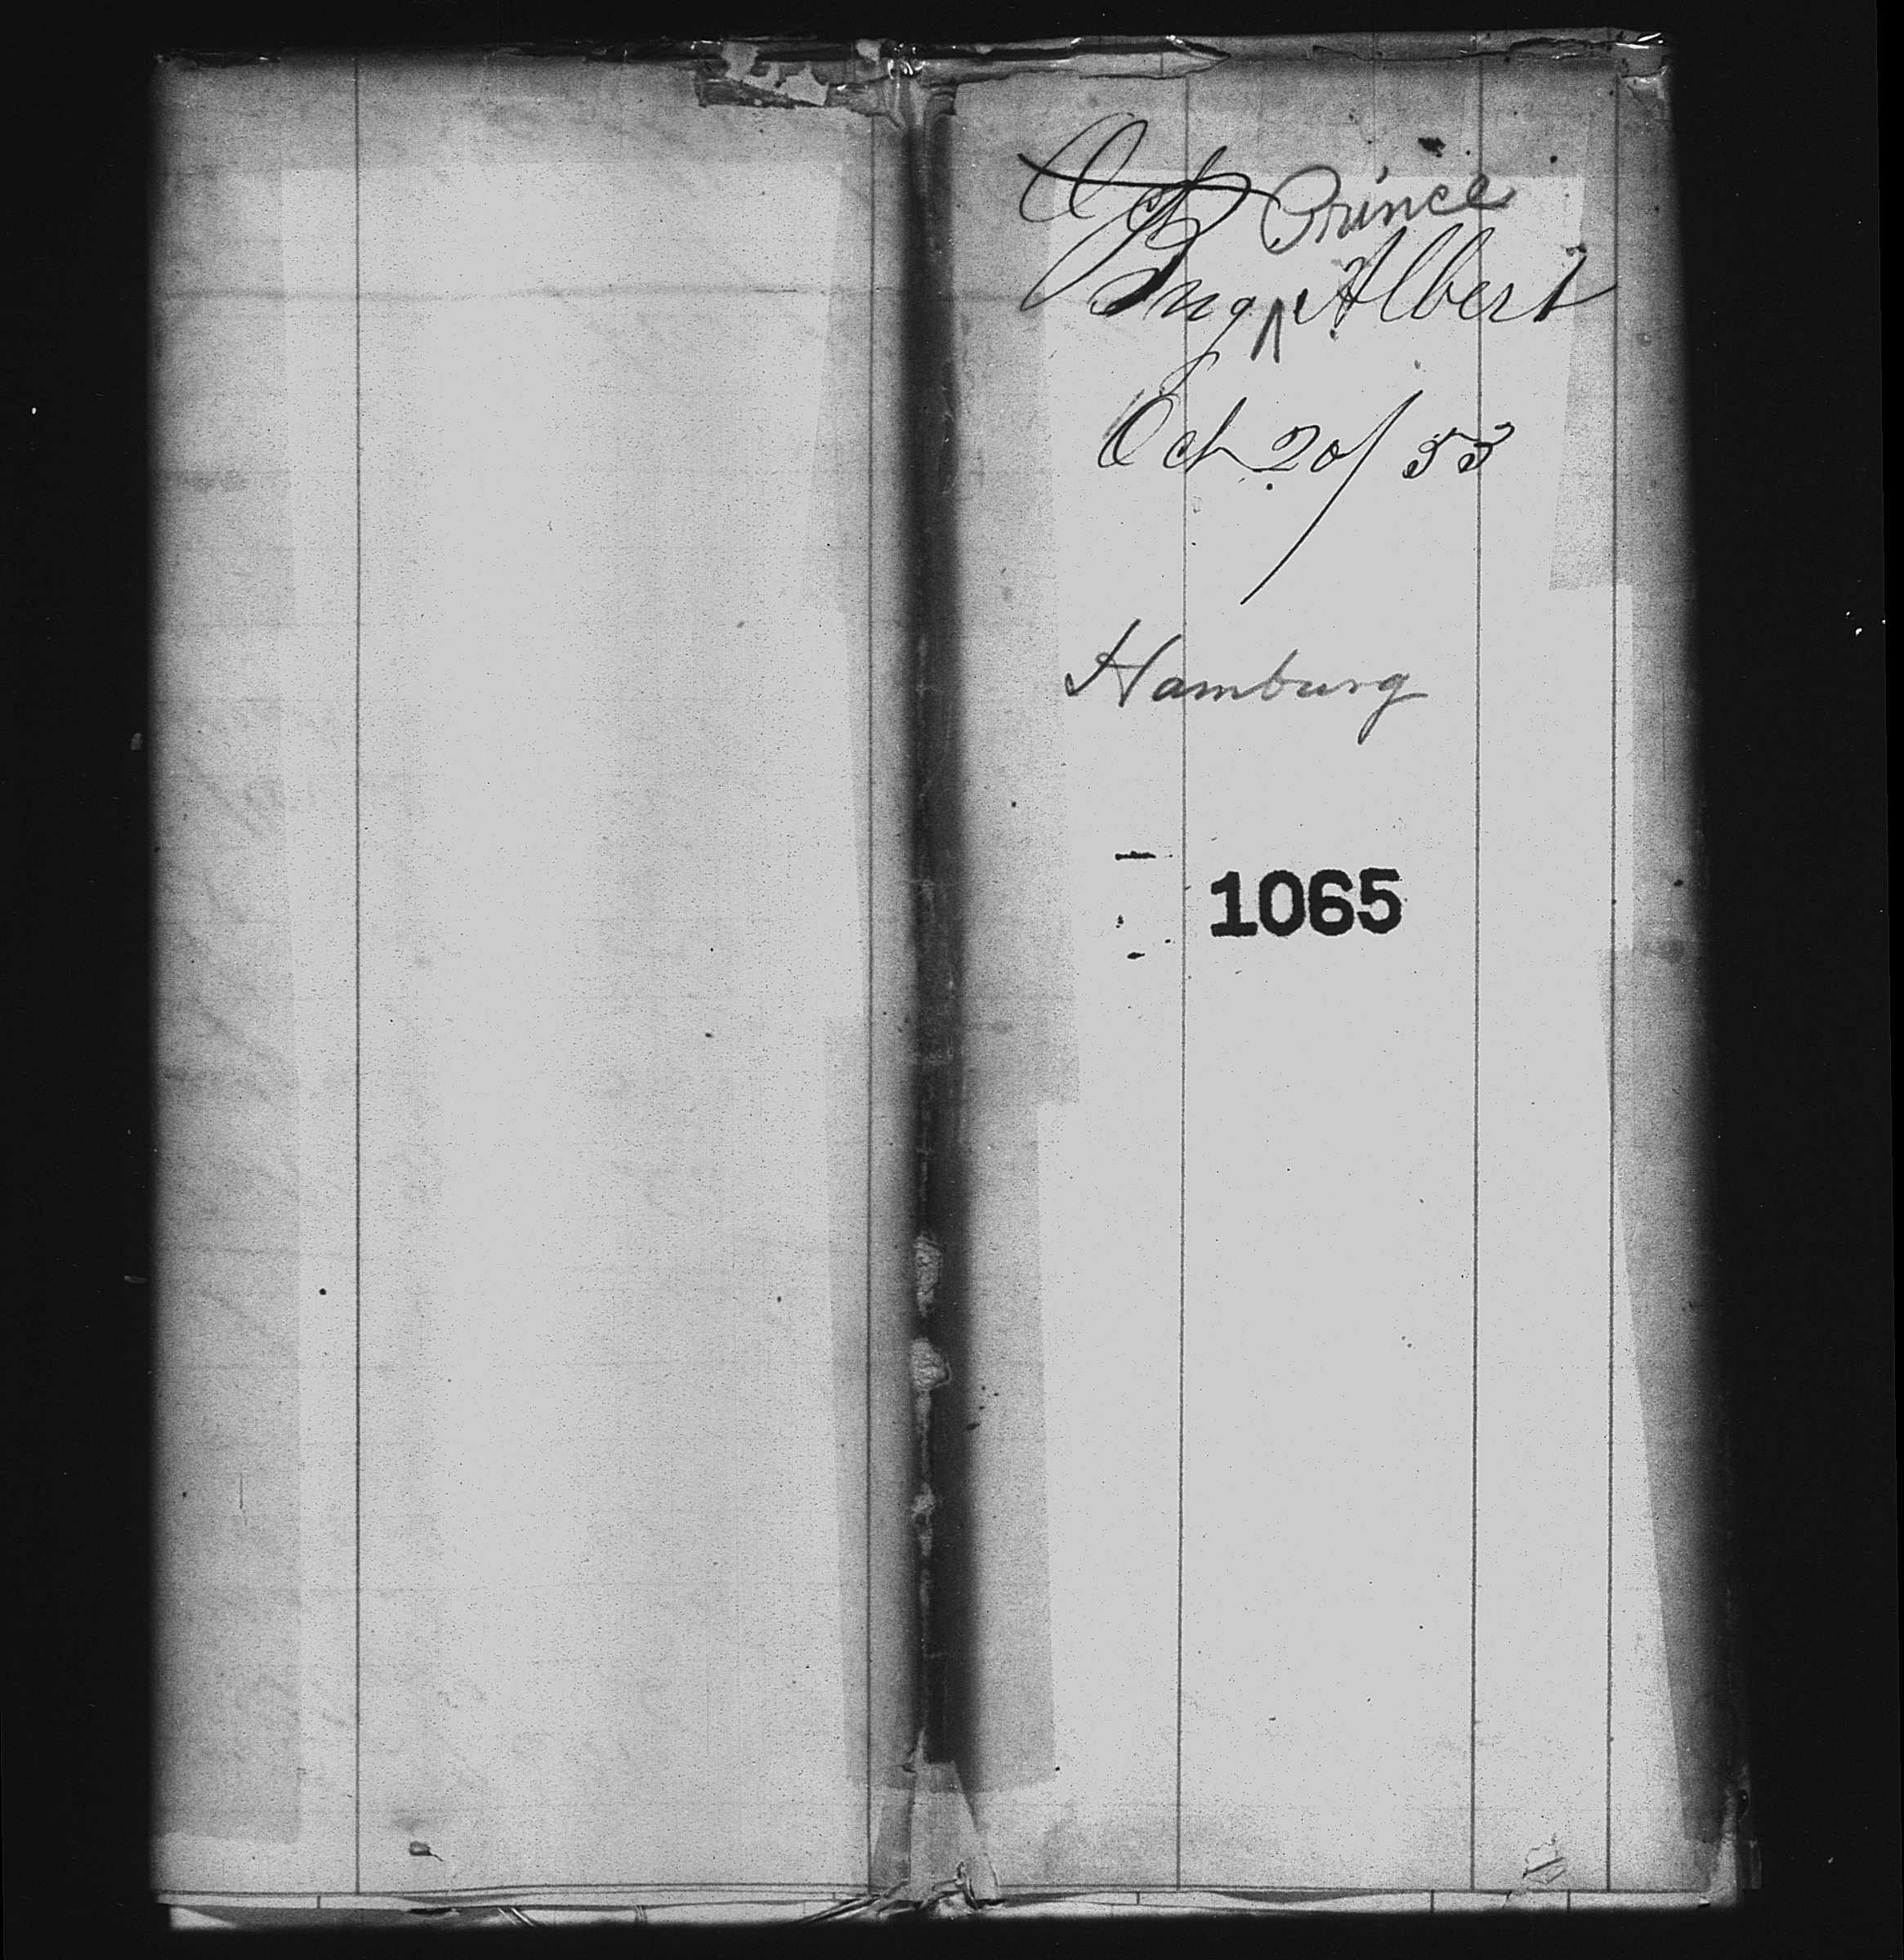 Oct Prince
Brig ^ Albert
Oct 20/53
Hamburg
1065